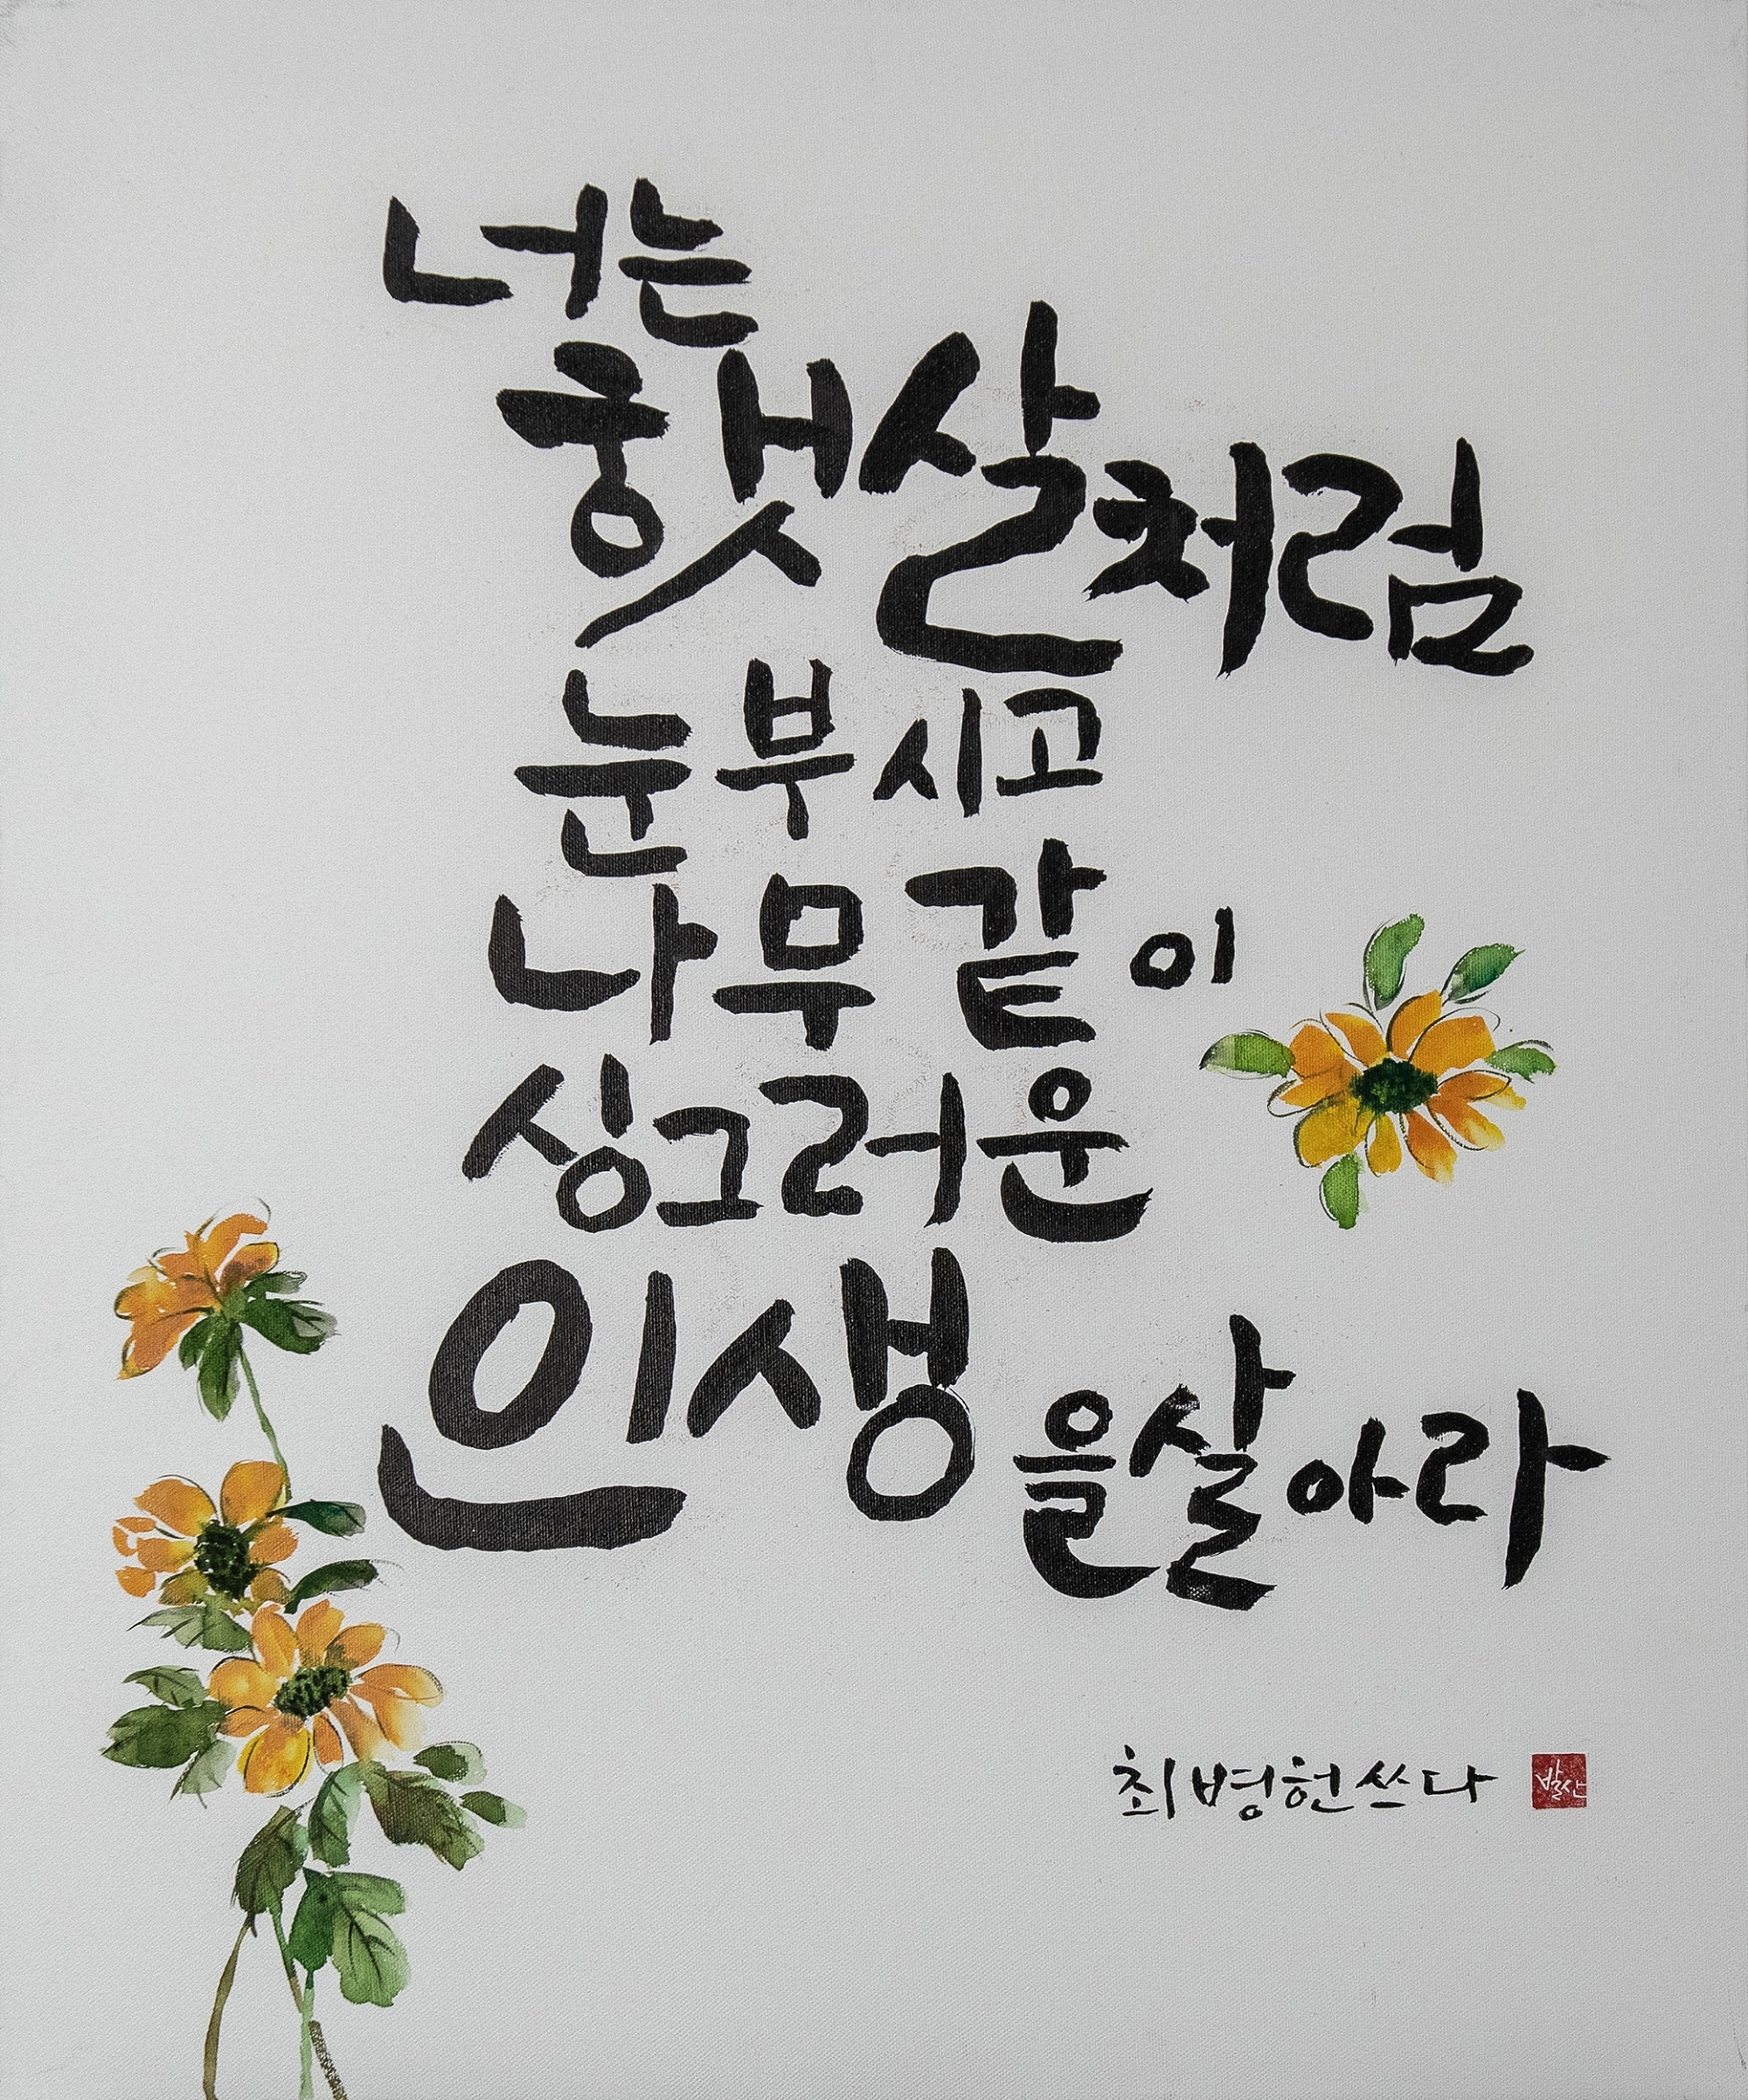 너는
햇살처럼
눈부시고
나무같이
싱그러운
인생을살아라
최병헌쓰다
발산